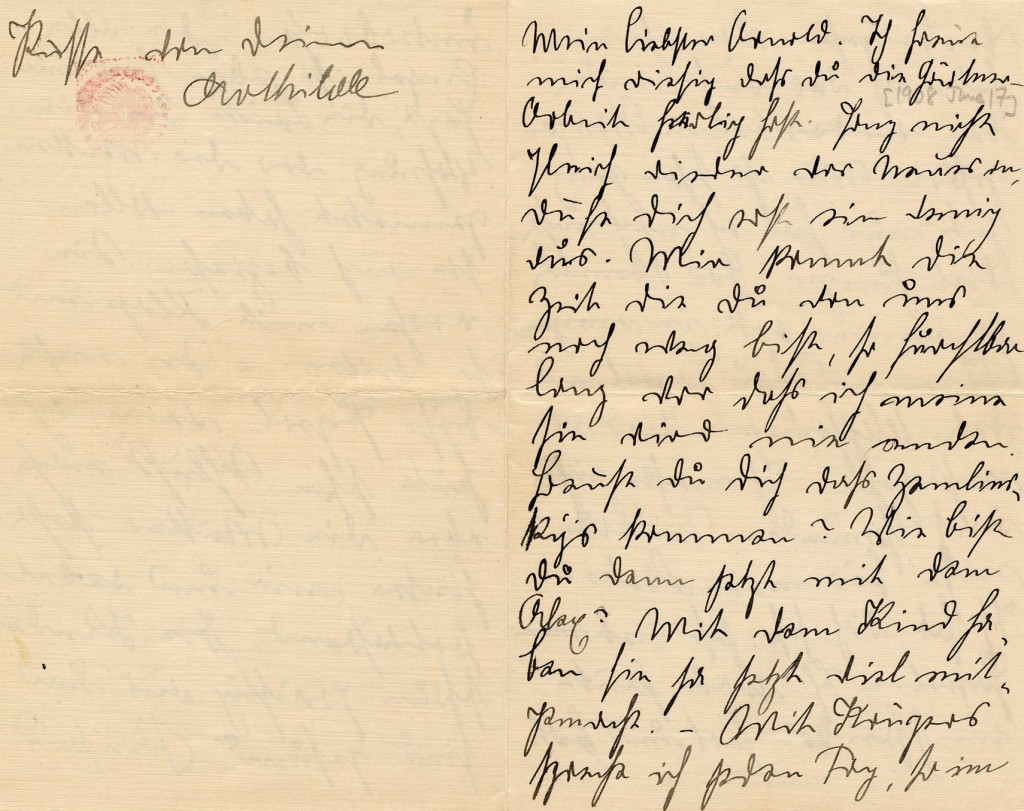 Küsse von Deiner
Mathilde
Mein liebster Arnold. Ich freue
mich riesig dass du die Gärtner-
[1908 June 17]
Arbeit fertig hast. Fang nicht
gleich wieder was Neues an,
Ruhe Dich erst ein wenig
aus. Mir kommt die
Zeit die du von uns
noch weg bist, so furchtbar
lang vor dass ich meine
sie wird nie enden.
Freust du Dich dass Zemlins-
kys kommen? Wie bist
du denn jetzt mit dem
Alex? Mit dem Kind ha-
ben sie ja jetzt viel mit-
gemacht. – Mit Krügers
spreche ich jeden Tag, so im